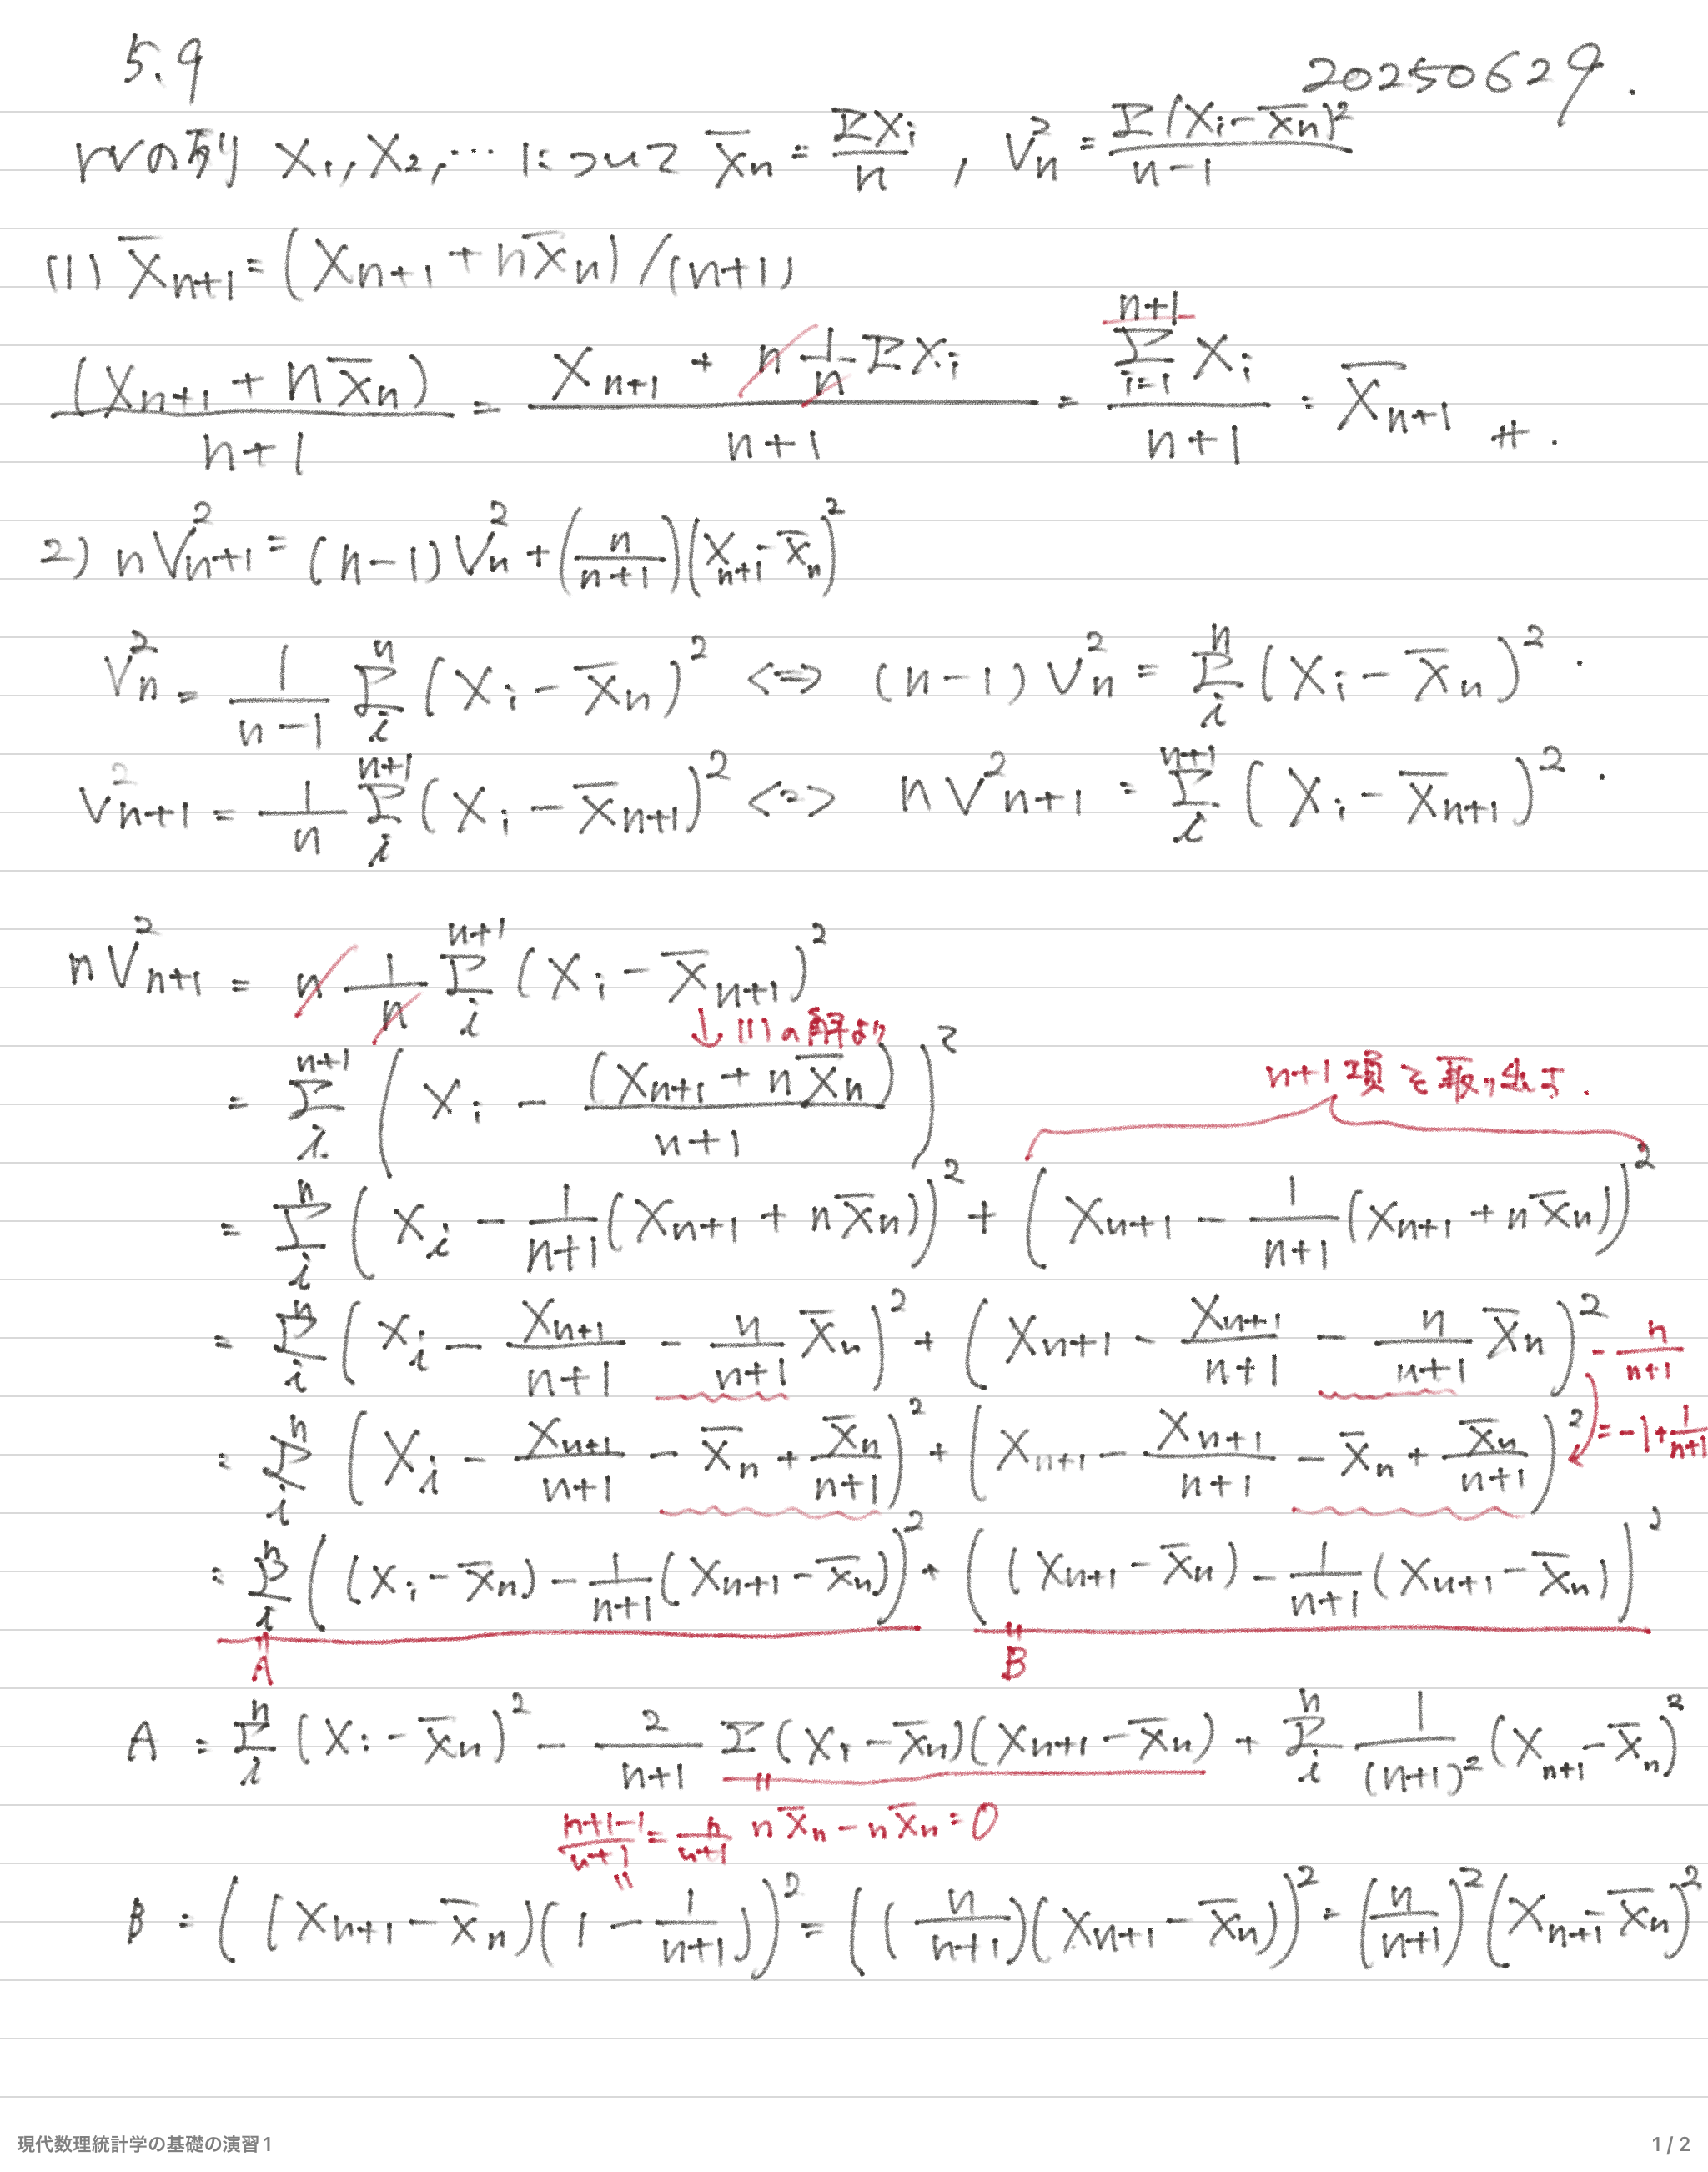 5.9
20250629.
rvの列 X₁, X₂, … について X̄ₙ = ΣXᵢ/n , Vₙ² = Σ(Xᵢ-X̄ₙ)²/(n-1)
(1) X̄ₙ₊₁ = (Xₙ₊₁ + nX̄ₙ)/(n+1)
(Xₙ₊₁ + nX̄ₙ)/(n+1) = (Xₙ₊₁ + n (1/n) ΣXᵢ)/(n+1) = (Σ_{i=1}^{n+1} Xᵢ)/(n+1) = X̄ₙ₊₁ #.
2) nVₙ₊₁² = (n-1)Vₙ² + (n/(n+1))(Xₙ₊₁-X̄ₙ)²
Vₙ² = 1/(n-1) Σ_i^n (Xᵢ - X̄ₙ)² <=> (n-1)Vₙ² = Σ_i^n (Xᵢ - X̄ₙ)² .
Vₙ₊₁² = 1/n Σ_i^{n+1} (Xᵢ - X̄ₙ₊₁)² <=> nVₙ₊₁² = Σ_i^{n+1} (Xᵢ - X̄ₙ₊₁)² .
nVₙ₊₁² = n (1/n) Σ_i^{n+1} (Xᵢ - X̄ₙ₊₁)²
↓ (1)の解より
= Σ_i^{n+1} (Xᵢ - (Xₙ₊₁ + nX̄ₙ)/(n+1))²
n+1項を取り出す.
= Σ_i^n (Xᵢ - 1/(n+1) (Xₙ₊₁ + nX̄ₙ))² + (Xₙ₊₁ - 1/(n+1) (Xₙ₊₁ + nX̄ₙ))²
= Σ_i^n (Xᵢ - Xₙ₊₁/(n+1) - n/(n+1) X̄ₙ)² + (Xₙ₊₁ - Xₙ₊₁/(n+1) - n/(n+1) X̄ₙ)²
- n/(n+1)
= -1 + 1/(n+1)
= Σ_i^n (Xᵢ - Xₙ₊₁/(n+1) - X̄ₙ + X̄ₙ/(n+1))² + (Xₙ₊₁ - Xₙ₊₁/(n+1) - X̄ₙ + X̄ₙ/(n+1))²
= Σ_i^n ((Xᵢ - X̄ₙ) - 1/(n+1) (Xₙ₊₁ - X̄ₙ))² + ((Xₙ₊₁ - X̄ₙ) - 1/(n+1) (Xₙ₊₁ - X̄ₙ))²
A B
A = Σ_i^n (Xᵢ - X̄ₙ)² - 2/(n+1) Σ(Xᵢ - X̄ₙ)(Xₙ₊₁ - X̄ₙ) + Σ_i^n 1/(n+1)² (Xₙ₊₁ - X̄ₙ)²
(n+1-1)/(n+1) = n/(n+1)
nX̄ₙ - nX̄ₙ = 0
B = ((Xₙ₊₁ - X̄ₙ)(1 - 1/(n+1)))² = ((n/(n+1))(Xₙ₊₁ - X̄ₙ))² = (n/(n+1))² (Xₙ₊₁ - X̄ₙ)²
現代数理統計学の基礎の演習1
1 / 2